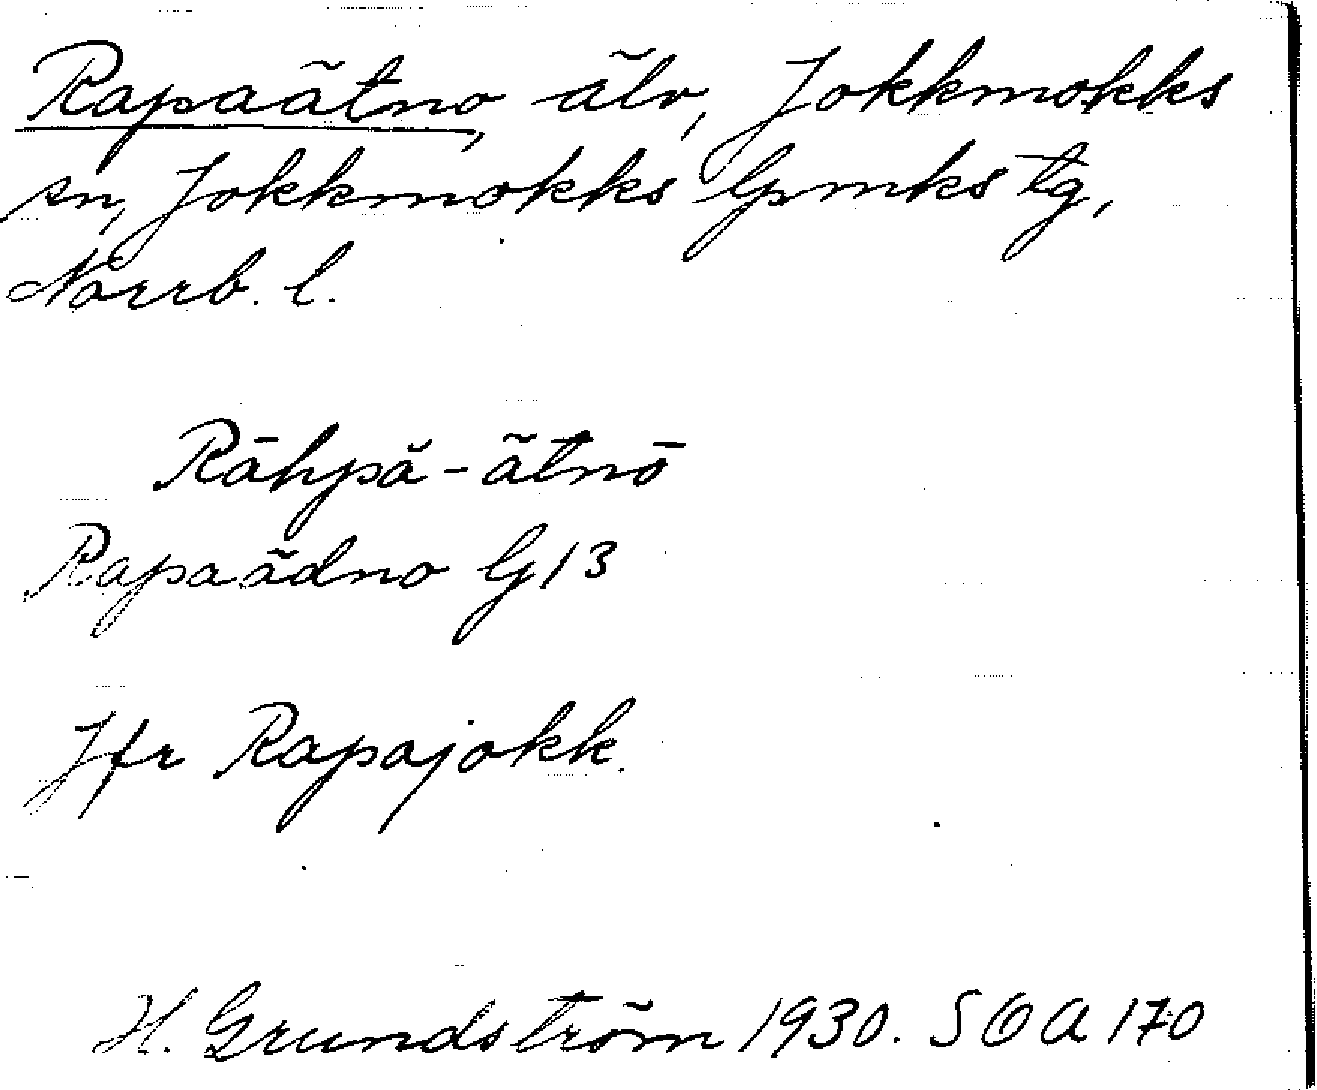 Rapaätno, älv, Jokkmokks
sn, Jokkmokks lpmks tg,
Norrb. l.
Rāhpă-ätnō
Rapaädno G13
Jfr Rapajokk.
H. Grundström 1930. SOA 170